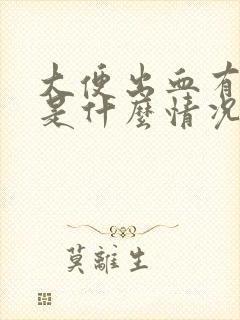 大便出血有
是什麼情況
莫離生